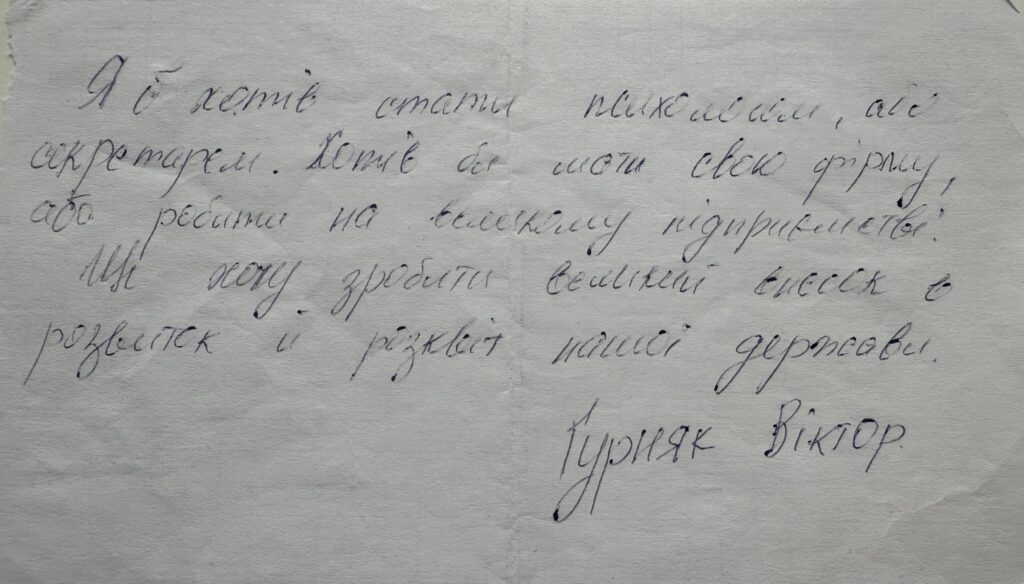 Я б хотів стати психологом, або
секретарем. Хотів би мати свою фірму,
або робити на великому підприємстві.
Ще хочу зробити великий внесок в
розвиток й розквіт нашої держави.
Гурняк Віктор.